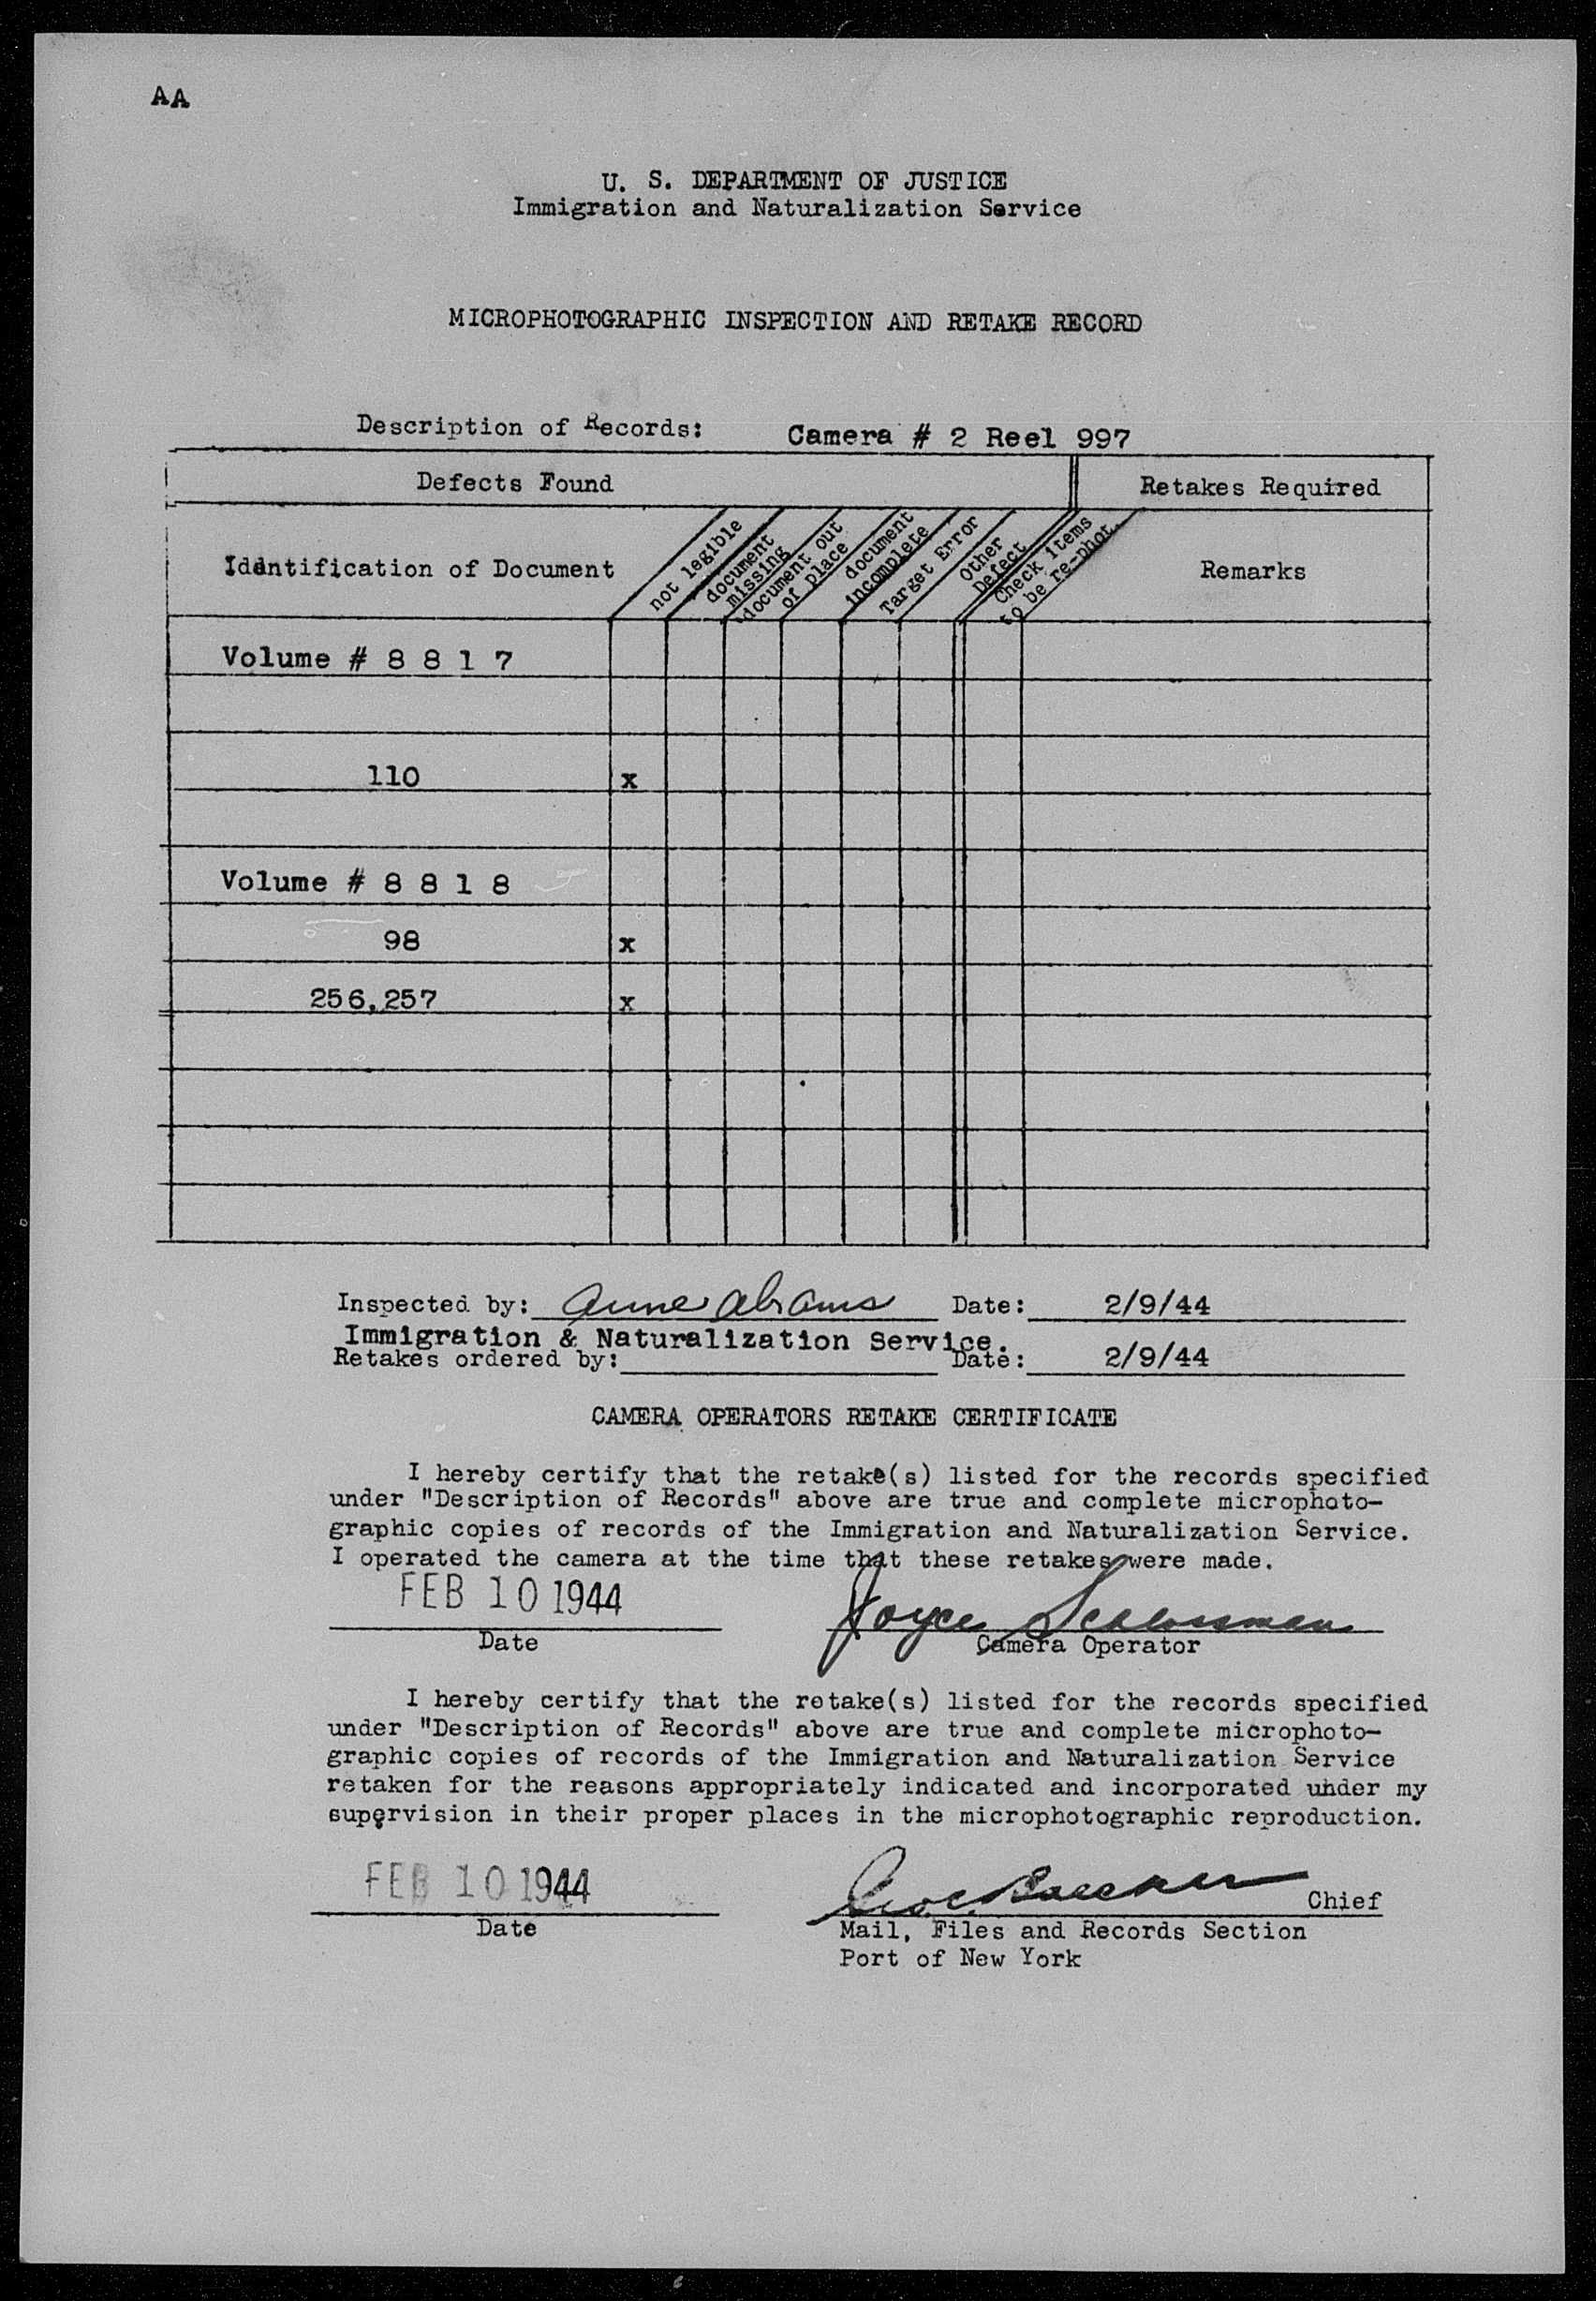 AA
U. S. DEPARTMENT OF JUSTICE
Immigration and Naturalization Service
MICROPHOTOGRAPHIC INSPECTION AND RETAKE RECORD
Description of Records: Camera # 2 Reel 997
Defects Found Retakes Required
Identification of Document
not legible
document missing
document out of place
document incomplete
Target Error
Other Defect
Check items to be re-phot.
Remarks
Volume # 8 8 1 7
110 x
Volume # 8 8 1 8
98 x
256,257 x
Inspected by: Anne Abrams Date: 2/9/44
Immigration & Naturalization Service.
Retakes ordered by: Date: 2/9/44
CAMERA OPERATORS RETAKE CERTIFICATE
I hereby certify that the retake(s) listed for the records specified
under "Description of Records" above are true and complete microphoto-
graphic copies of records of the Immigration and Naturalization Service.
I operated the camera at the time that these retakes were made.
FEB 10 1944 Joyce Schlossman
Date Camera Operator
I hereby certify that the retake(s) listed for the records specified
under "Description of Records" above are true and complete microphoto-
graphic copies of records of the Immigration and Naturalization Service
retaken for the reasons appropriately indicated and incorporated under my
supervision in their proper places in the microphotographic reproduction.
FEB 10 1944 Chief
Date Mail, Files and Records Section
Port of New York